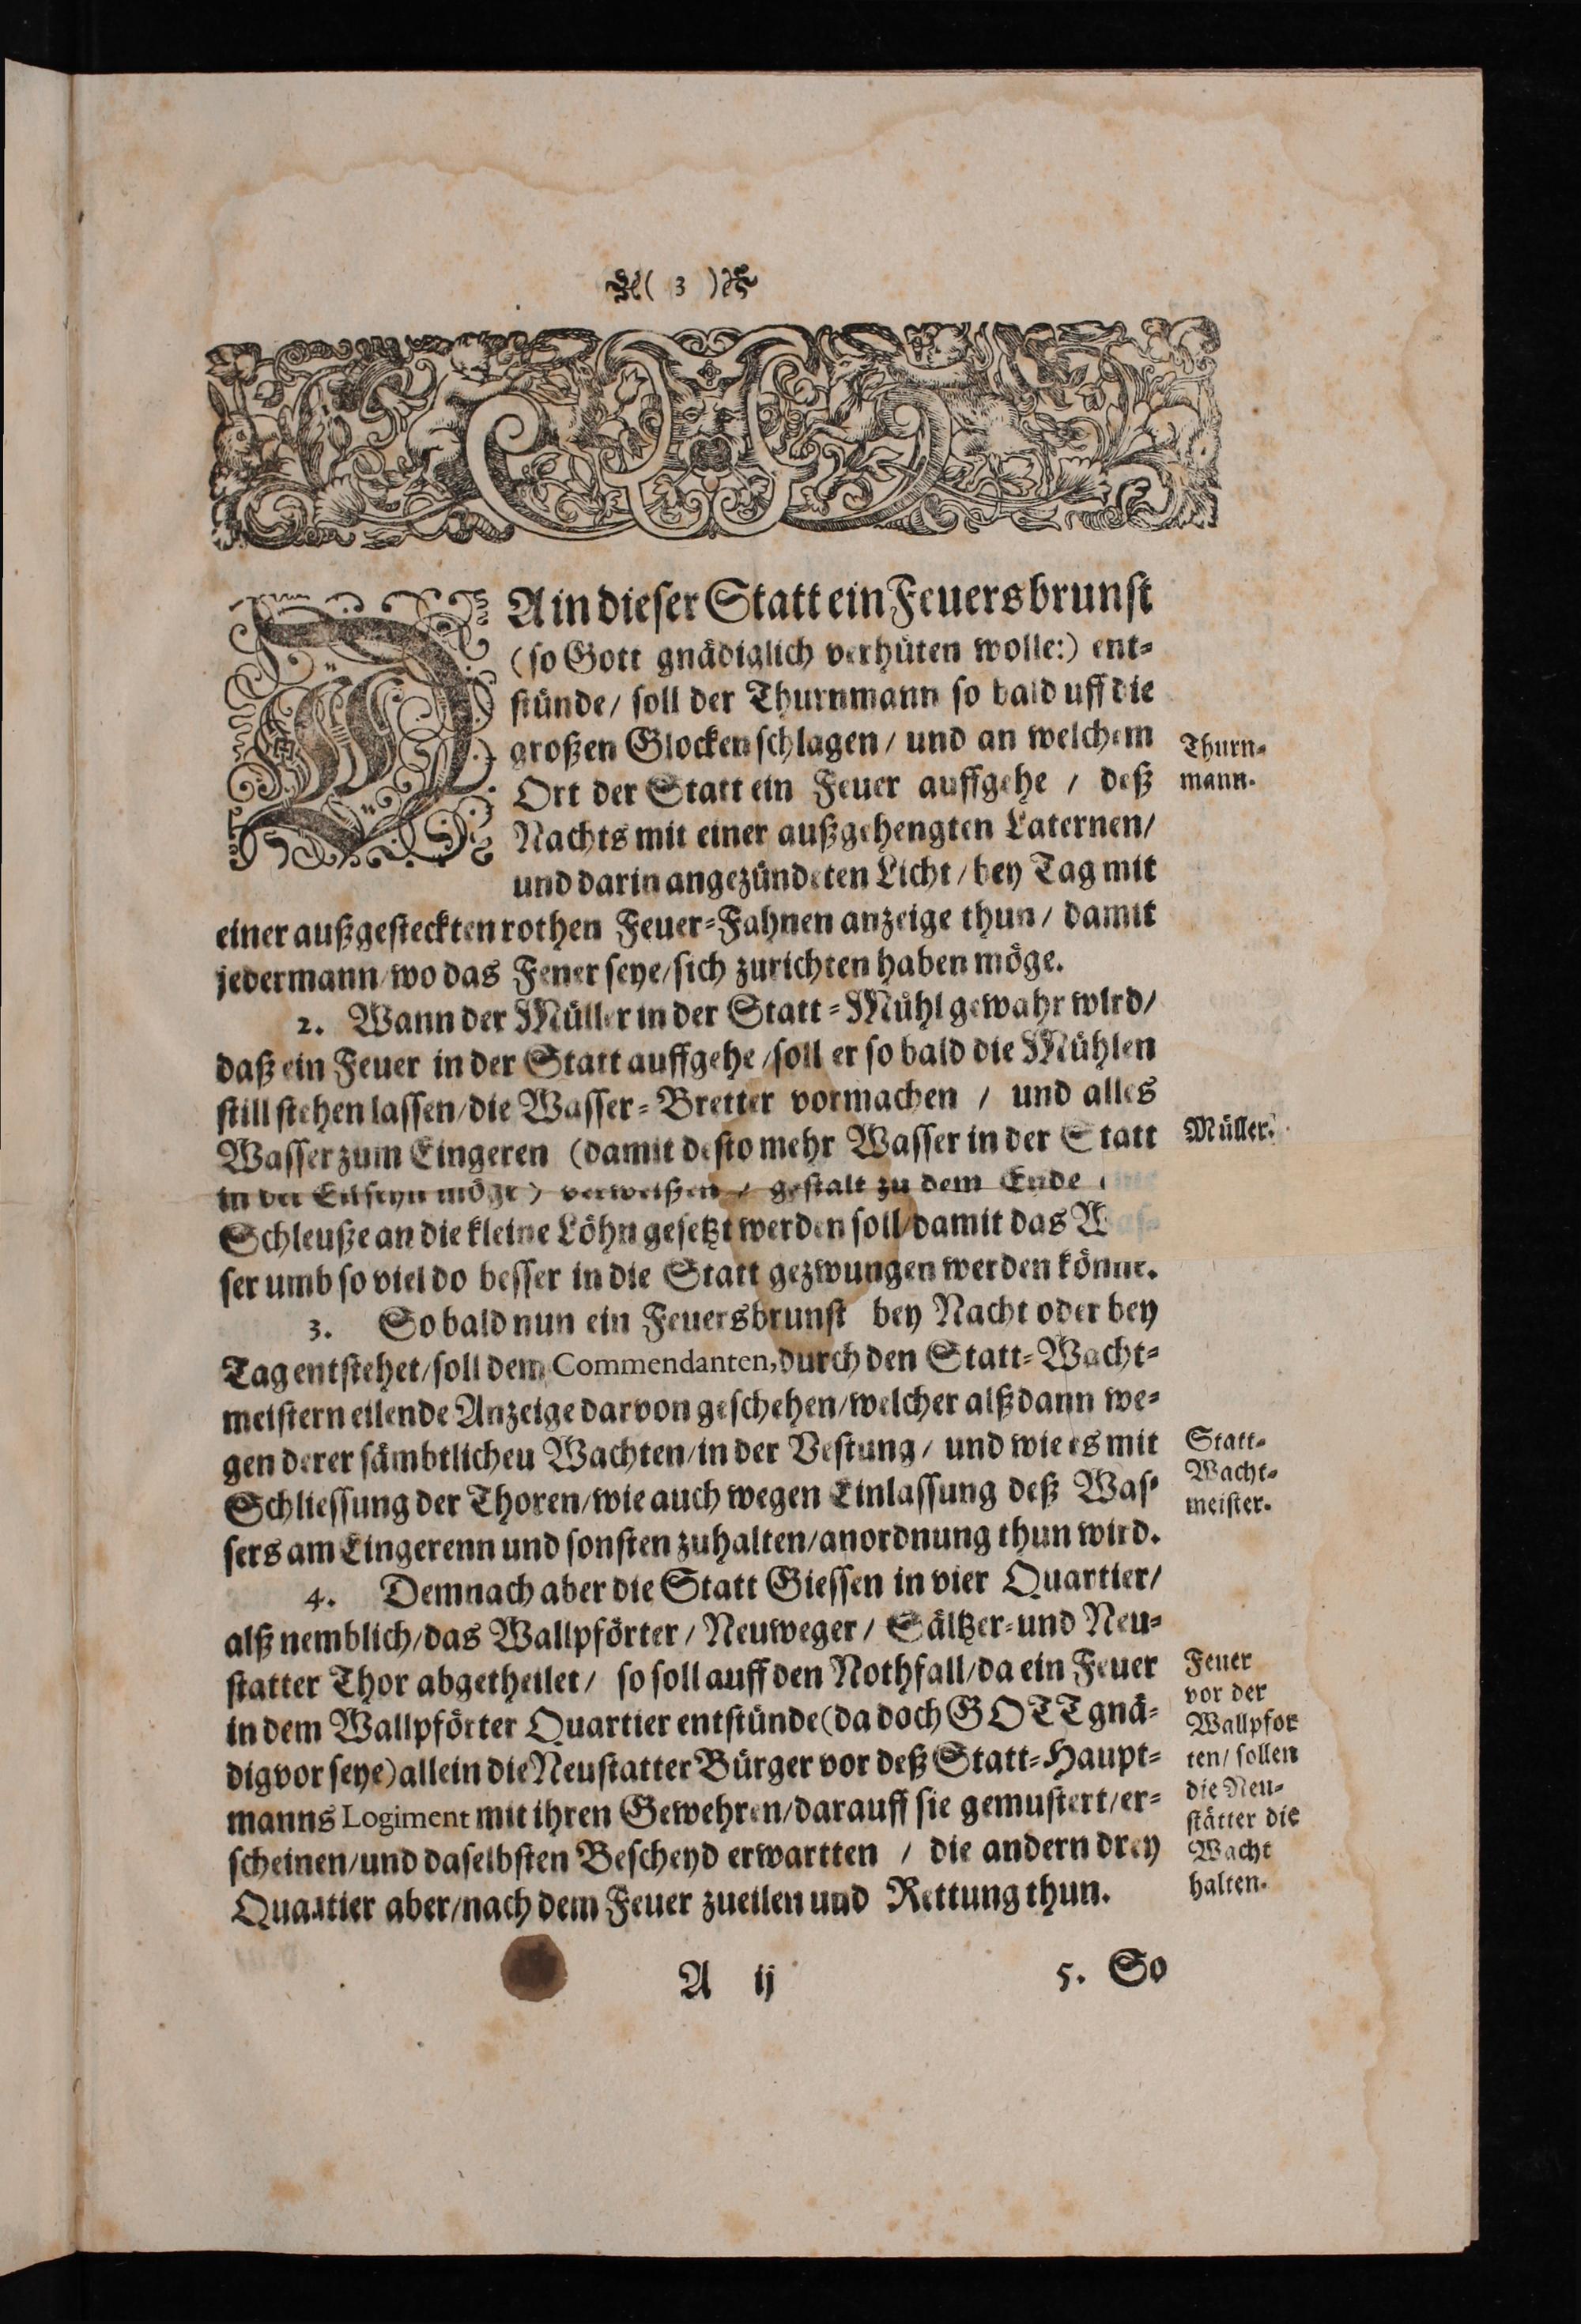 ( 3 )
DA in dieser Statt ein Feuersbrunst
(so Gott gnädiglich verhüten wolle:) ent-
stünde / soll der Thurnmann so bald uff die
großen Glocken schlagen / und an welchem
Thurn-
Ort der Statt ein Feuer auffgehe / deß
mann.
Nachts mit einer außgehengten Laternen /
und darin angezündeten Licht / bey Tag mit
einer außgesteckten rothen Feuer-Fahnen anzeige thun / damit
jedermann / wo das Fener seye / sich zurichten haben möge.
2. Wann der Müller in der Statt-Mühl gewahr wird /
daß ein Feuer in der Statt auffgehe / soll er so bald die Mühlen
still stehen lassen / die Wasser-Bretter vormachen / und alles
Wasser zum Eingeren (damit desto mehr Wasser in der Statt
Müller.
in der Eil seyn möge) verweißen / gestalt zu dem Ende
Schleuße an die kleine Löhn gesetzt werden soll / damit das Was-
ser umb so viel do besser in die Statt gezwungen werden könne.
3. So bald nun ein Feuersbrunst bey Nacht oder bey
Tag entstehet / soll dem Commendanten, durch den Statt-Wacht-
meistern eilende Anzeige darvon geschehen / welcher alßdann we-
gen derer sämbtlicheu Wachten / in der Vestung / und wie es mit
Statt-
Schliessung der Thoren / wie auch wegen Einlassung deß Was-
Wacht-
meister.
sers am Eingerenn und sonsten zuhalten / anordnung thun wird.
4. Demnach aber die Statt Giessen in vier Quartier /
alß nemblich / das Wallpförter / Neuweger / Sältzer- und Neu-
statter Thor abgetheilet / so soll auff den Nothfall / da ein Feuer
Feuer
vor der
in dem Wallpförter Quartier entstünde (da doch GOTT gnä-
Wallpfor
dig vor seye) allein die Neustatter Bürger vor deß Statt-Haupt-
ten / sollen
die Neu-
manns Logiment mit ihren Gewehren / darauff sie gemustert / er-
stätter die
scheinen / und daselbsten Bescheyd erwartten / die andern drey
Wacht
Quartier aber / nach dem Feuer zueilen und Rettung thun.
halten.
A ij
5. So